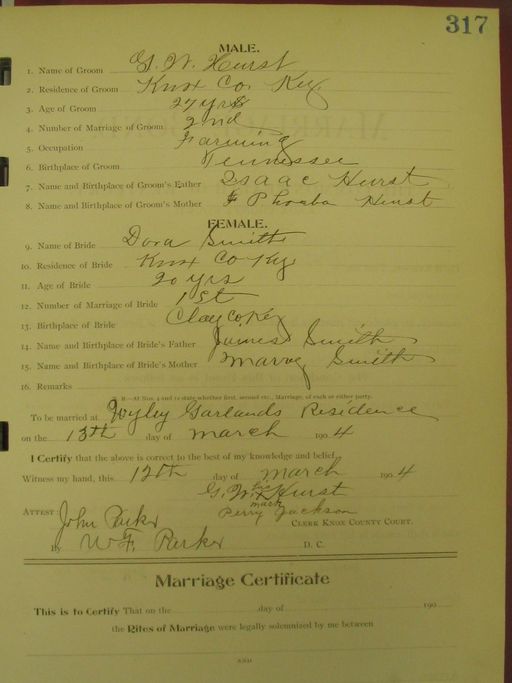 317
MALE.
1. Name of Groom G. W. Hurst
2. Residence of Groom Knox Co. Ky.
3. Age of Groom 27 yrs
4. Number of Marriage of Groom 2nd
5. Occupation Farming
6. Birthplace of Groom Tennessee
7. Name and Birthplace of Groom's Father Isaac Hurst
8. Name and Birthplace of Groom's Mother Phoeba Hurst
FEMALE.
9. Name of Bride Dora Smith
10. Residence of Bride Knox Co Ky
11. Age of Bride 20 yrs
12. Number of Marriage of Bride 1st
13. Birthplace of Bride Clay Co, Ky
14. Name and Birthplace of Bride's Father James Smith
15. Name and Birthplace of Bride's Mother Marry Smith
16. Remarks
N—At Nos. 4 and 12 state whether first, second etc., Marriage, of each or either party.
To be married at Wyley Garlands Residence
on the 13th day of March 1904
I Certify that the above is correct to the best of my knowledge and belief.
Witness my hand, this 12th day of March 1904
G. W. his x mark Hurst
ATTEST: John Parker Perry Jackson
CLERK KNOX COUNTY COURT.
By W. F. Parker D. C.
Marriage Certificate
This is to Certify That on the day of 190
the Rites of Marriage were legally solemnized by me between